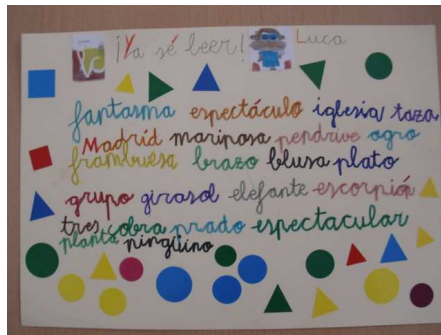 ¡Ya sé leer! Luca
fantasma espectáculo iglesia taza
Madrid mariposa pendrive ogro
frambuesa brazo blusa plato
grupo girasol elefante escorpión
tres cobra prado espectacular
planta pingüino